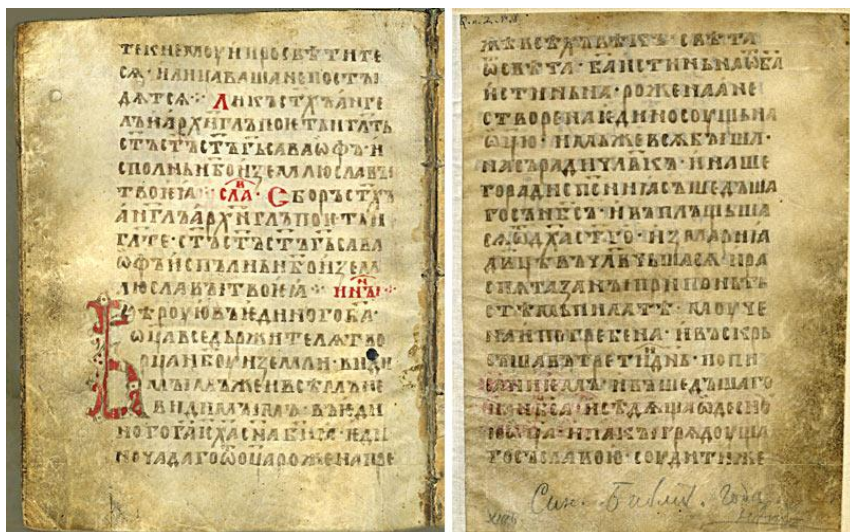 ТЕКНЕМОУ И ПРОСВѢТИТЕ
СѦ· И ЛИЦА ВАША НЕ ПОСТЪІ
ДѦТСѦ ·:· ЛИКЪ СТХЪ АНГЕ
ЛЪ И АРХИГЛЪ ПОЮТЬ ТИ ГЛТЬ
СТЪ СТЪ СТЪ ГЬ САВАѠФЪ· И
СПОЛНЬ НБО И ZЕМЛЮ СЛАВЪІ
ТВОЕꙖ · СЛАВ · СБОРЪ СТХЪ
АНГЛЪ АРХИГЛЪ ПОЮТЬ ТИ И
ГЛТЕ· СТЪ СТЪ СТЪ ГЬ САВА
ѠФЪ ИСПЪЛНЬ НБО И ZЕМ
ЛЮ СЛАВЪІ ТВОЕꙖ ·:· ИНЪІ ·:·
ВѢРОУЮ ВЪ ѤДИНОГО БА·
ѠЦА ВСЕДЬРЖИТЕЛѦ ТВО
РЦА НБОУ И ZЕМЛИ· ВИДИ
МЪІМЪ ЖЕ И ВСѢМЪ НЕ
ВИДИМЪІМЪ· ВЪ ѤДИ
НОГО ГА ІС ХА СНА БИꙖ· ѤДИ
НОЧАДАГО Ѡ ОЦА РОЖЕНА ПРЕ
ЖЕ ВСѢХЪ ВѢКЪ· СВѢТА
Ѡ СВѢТА· БА ИСТИНЬНА Ѡ БА
ИСТИНЬНА· РОЖЕНА А НЕ
СТВОРЕНА ѤДИНОСОУЩЬНА
ѠЦЮ· ИМЬЖЕ ВСѦ БЪІША·
НАСЪ РАДИ ЧЛВКЪ· И НАШЕ
ГО РАДИ СПСНИꙖ СЪШЕДЪША
ГО СЪ НБСЪ· И ВЪПЛЪЩЬША
СѦ Ѡ ДХА СТГО· И ZЪ МАРИꙖ
ДВЦѢ ВЪЧЛВЧЬШАСѦ· И РА
СПѦТА ZА НЪІ ПРИ ПОНЬТЬ
СТѢМЬ ПИЛАТѢ· МОУЧЕ
НА И ПОГРЕБЕНА· И ВЪСКРЬ
СЪША ВЪ ТРЕТИИ ДНЬ· ПО ПИ
САНИѤМЪ· И ВЪШЕДЪШАГО
НА НБСА И СѢДѦЩА Ѡ ДЕСНО
ЮѠЦА· И ПАКЪІ ГРѦДОУЩА
ГО СЪ СЛАВОЮ· СОУДИТИ ЖИ
Син. Библіот.